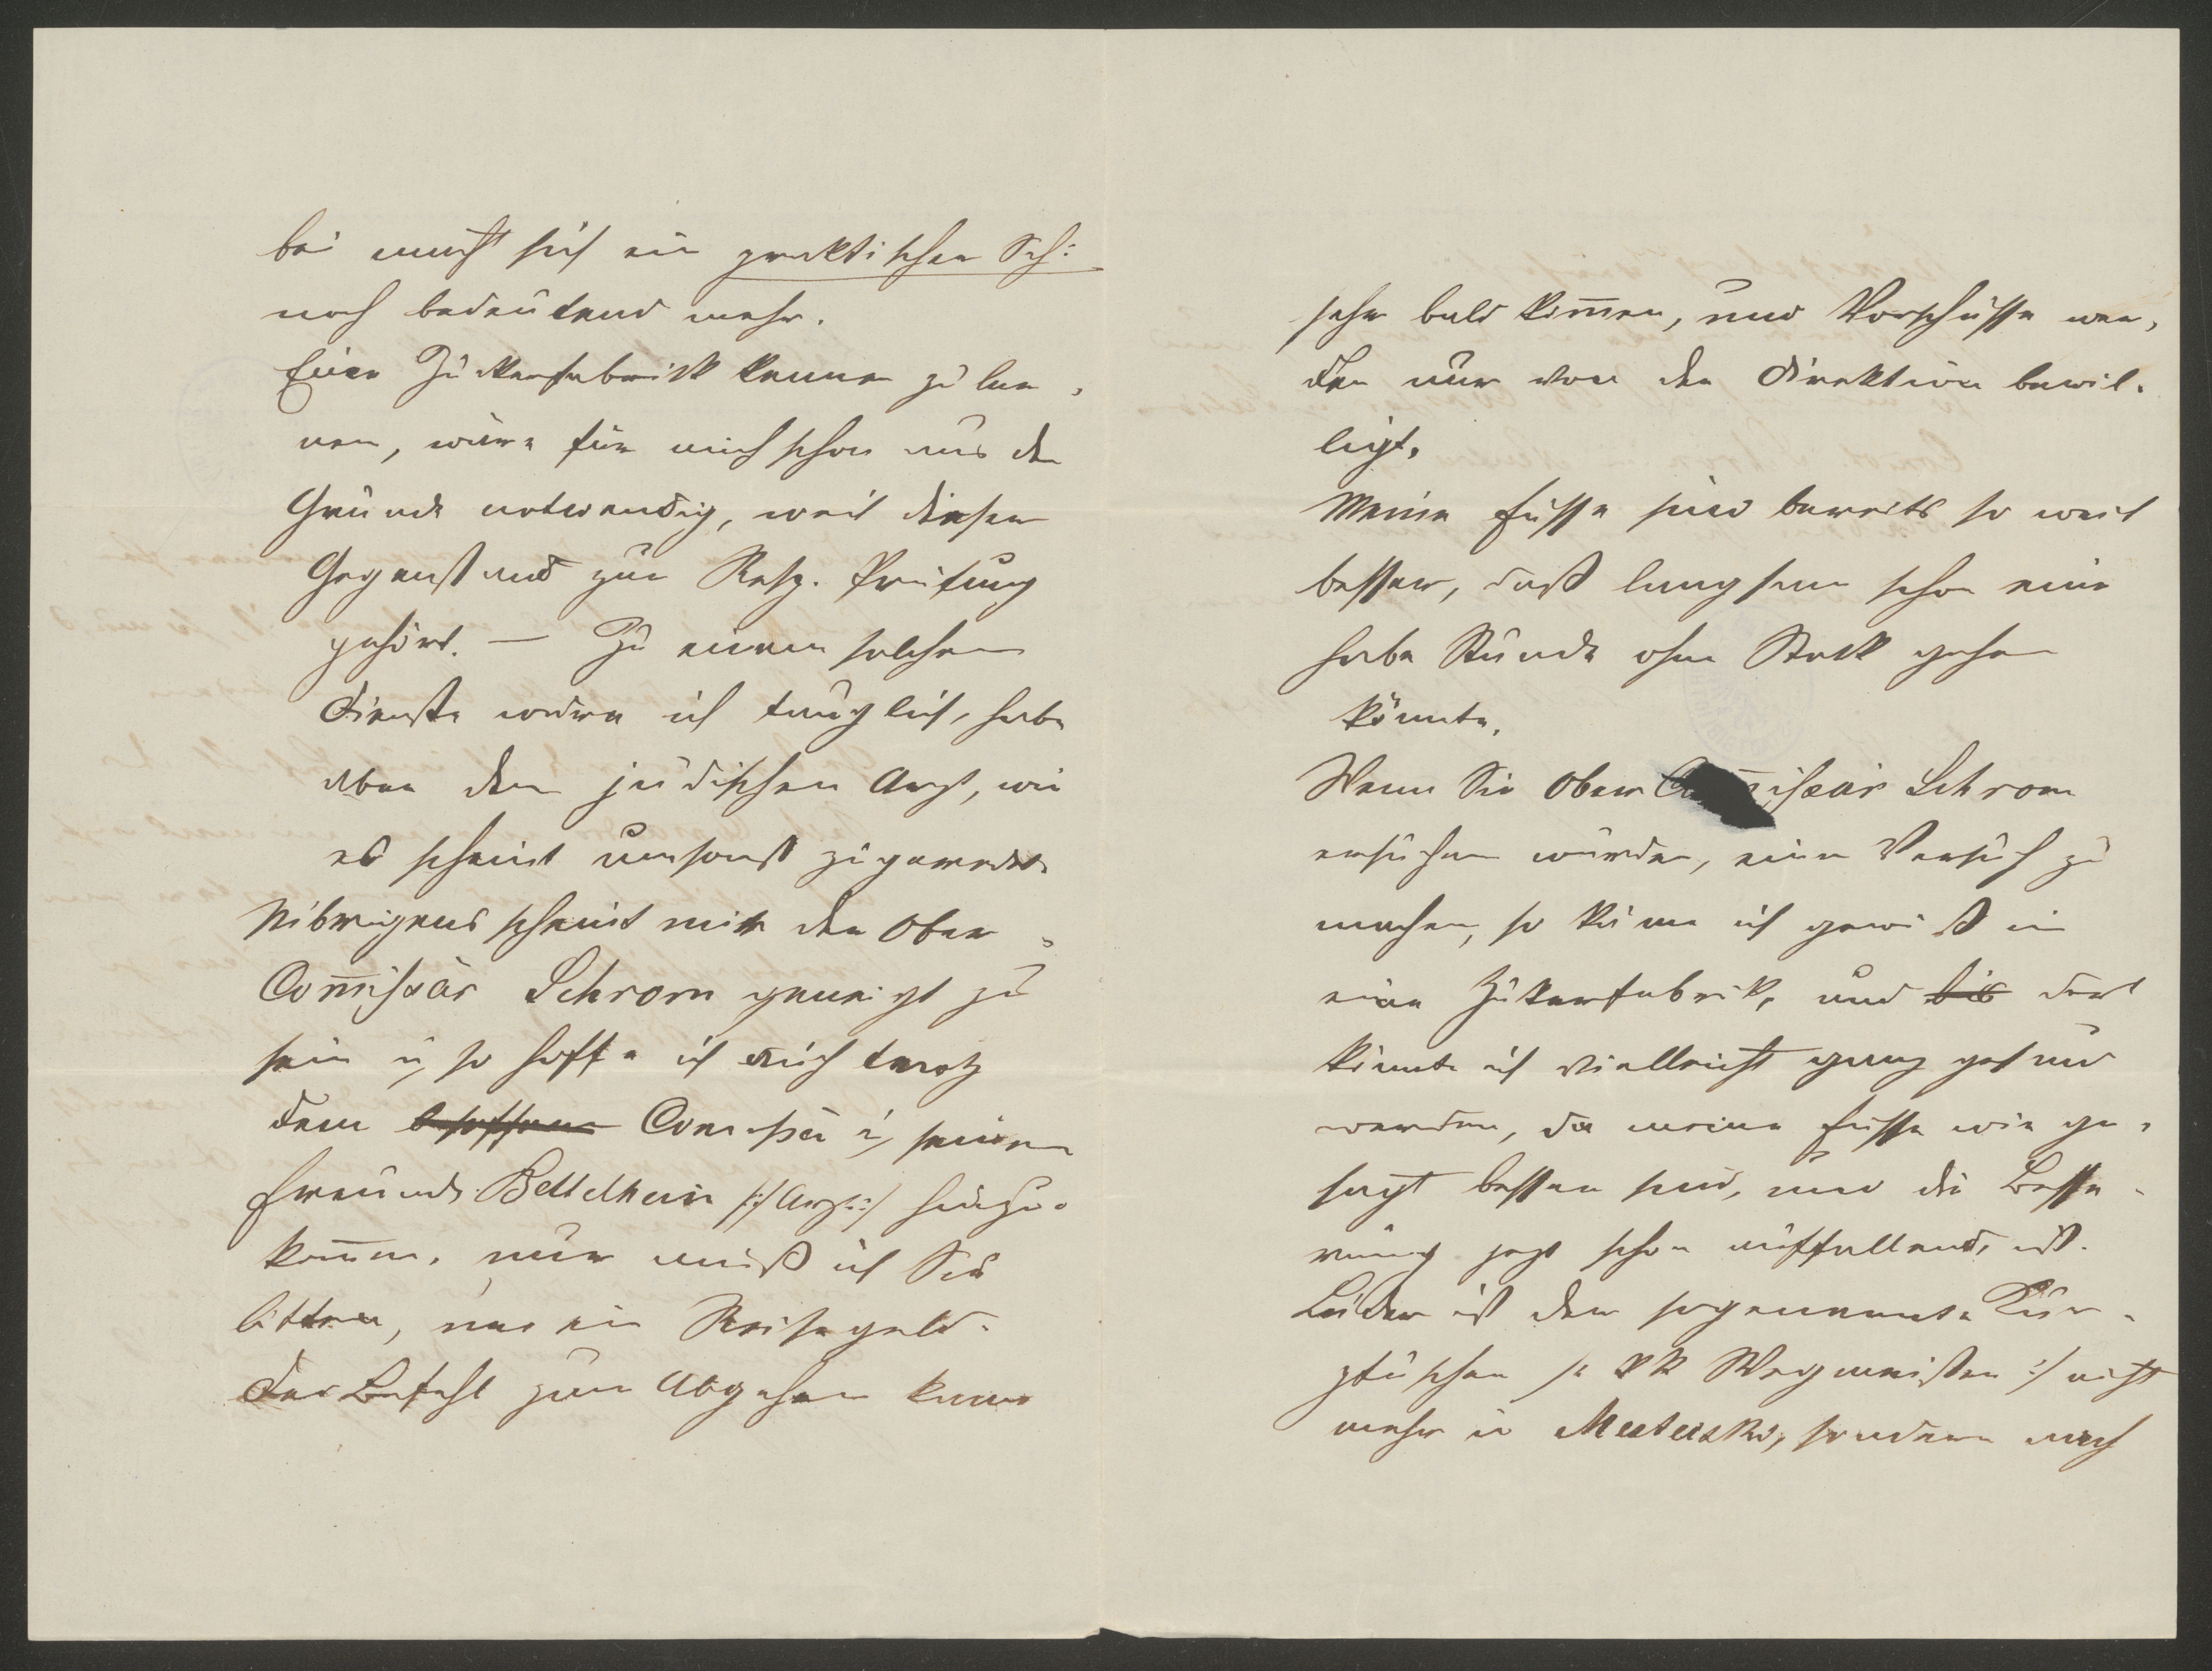 bei macht sich ein praktischer Sch:
noch bedeutend mehr.
Eine Zuckerfabrik kennen zu ler,
nen, wäre für mich schon aus dem
Grunde notwendig, weil dieser
Gegenstand zur Resp. Prüfung
gehört. — Zu einem solchen
Dienste wäre ich tauglich, habe
aber dem jüdischen Arzt, wie
es scheint umsonst zugeredet.
Uibrigens scheint mir der Ober
Com̅issär Schrom geneigt zu
sein u, so hoffe ich auch trotz
dem besoffenen Comissär u, seinem
Freunde Bettelheim /:Arzt:/ hinzu-
kom̅en. nur muß ich Sie
bitten, um ein Reisegeld.
Der Befehl zum Abgehen kann
sehr bald kom̅en, und Vorschüsse wer,
den nur von der Direktion bewil-
ligt.
Meine Füsse sind bereits so weit
besser, daß langsam schon eine
halbe Stunde ohne Stock gehen
könnte.
Wenn Sie Ober Com̅issär Schrom
ersuchen würden, einen Versuch zu
machen, so käme ich gewiß in
eine Zukerfabrik, und bis dort
könnte ich vielleicht ganz gesund
werden, da meine Füsse wie ge-
sagt besser sind, und die Besse-
rung jetzt schon auffallend ist.
Leider ist der sogenannte
/: kk Wegmeister :/ nicht
mehr in sondern nach